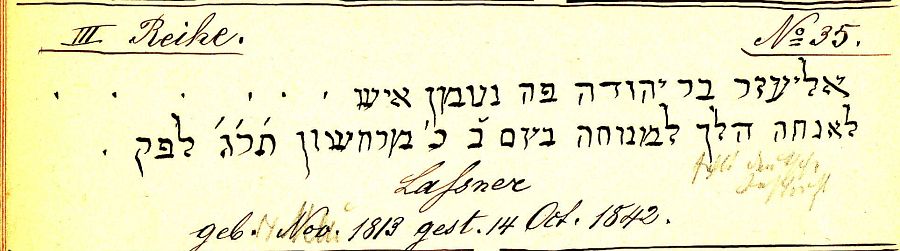 III Reihe. No 35.
אליעזר בר יהודה פה נטמן איש . . . . . .
לאנחה הלך למנוחה ביום ב' כ' מרחשון ת'ר'ג' לפק .
Laſsner
geb. Nov. 1813 gest. 14 Oct. 1842.